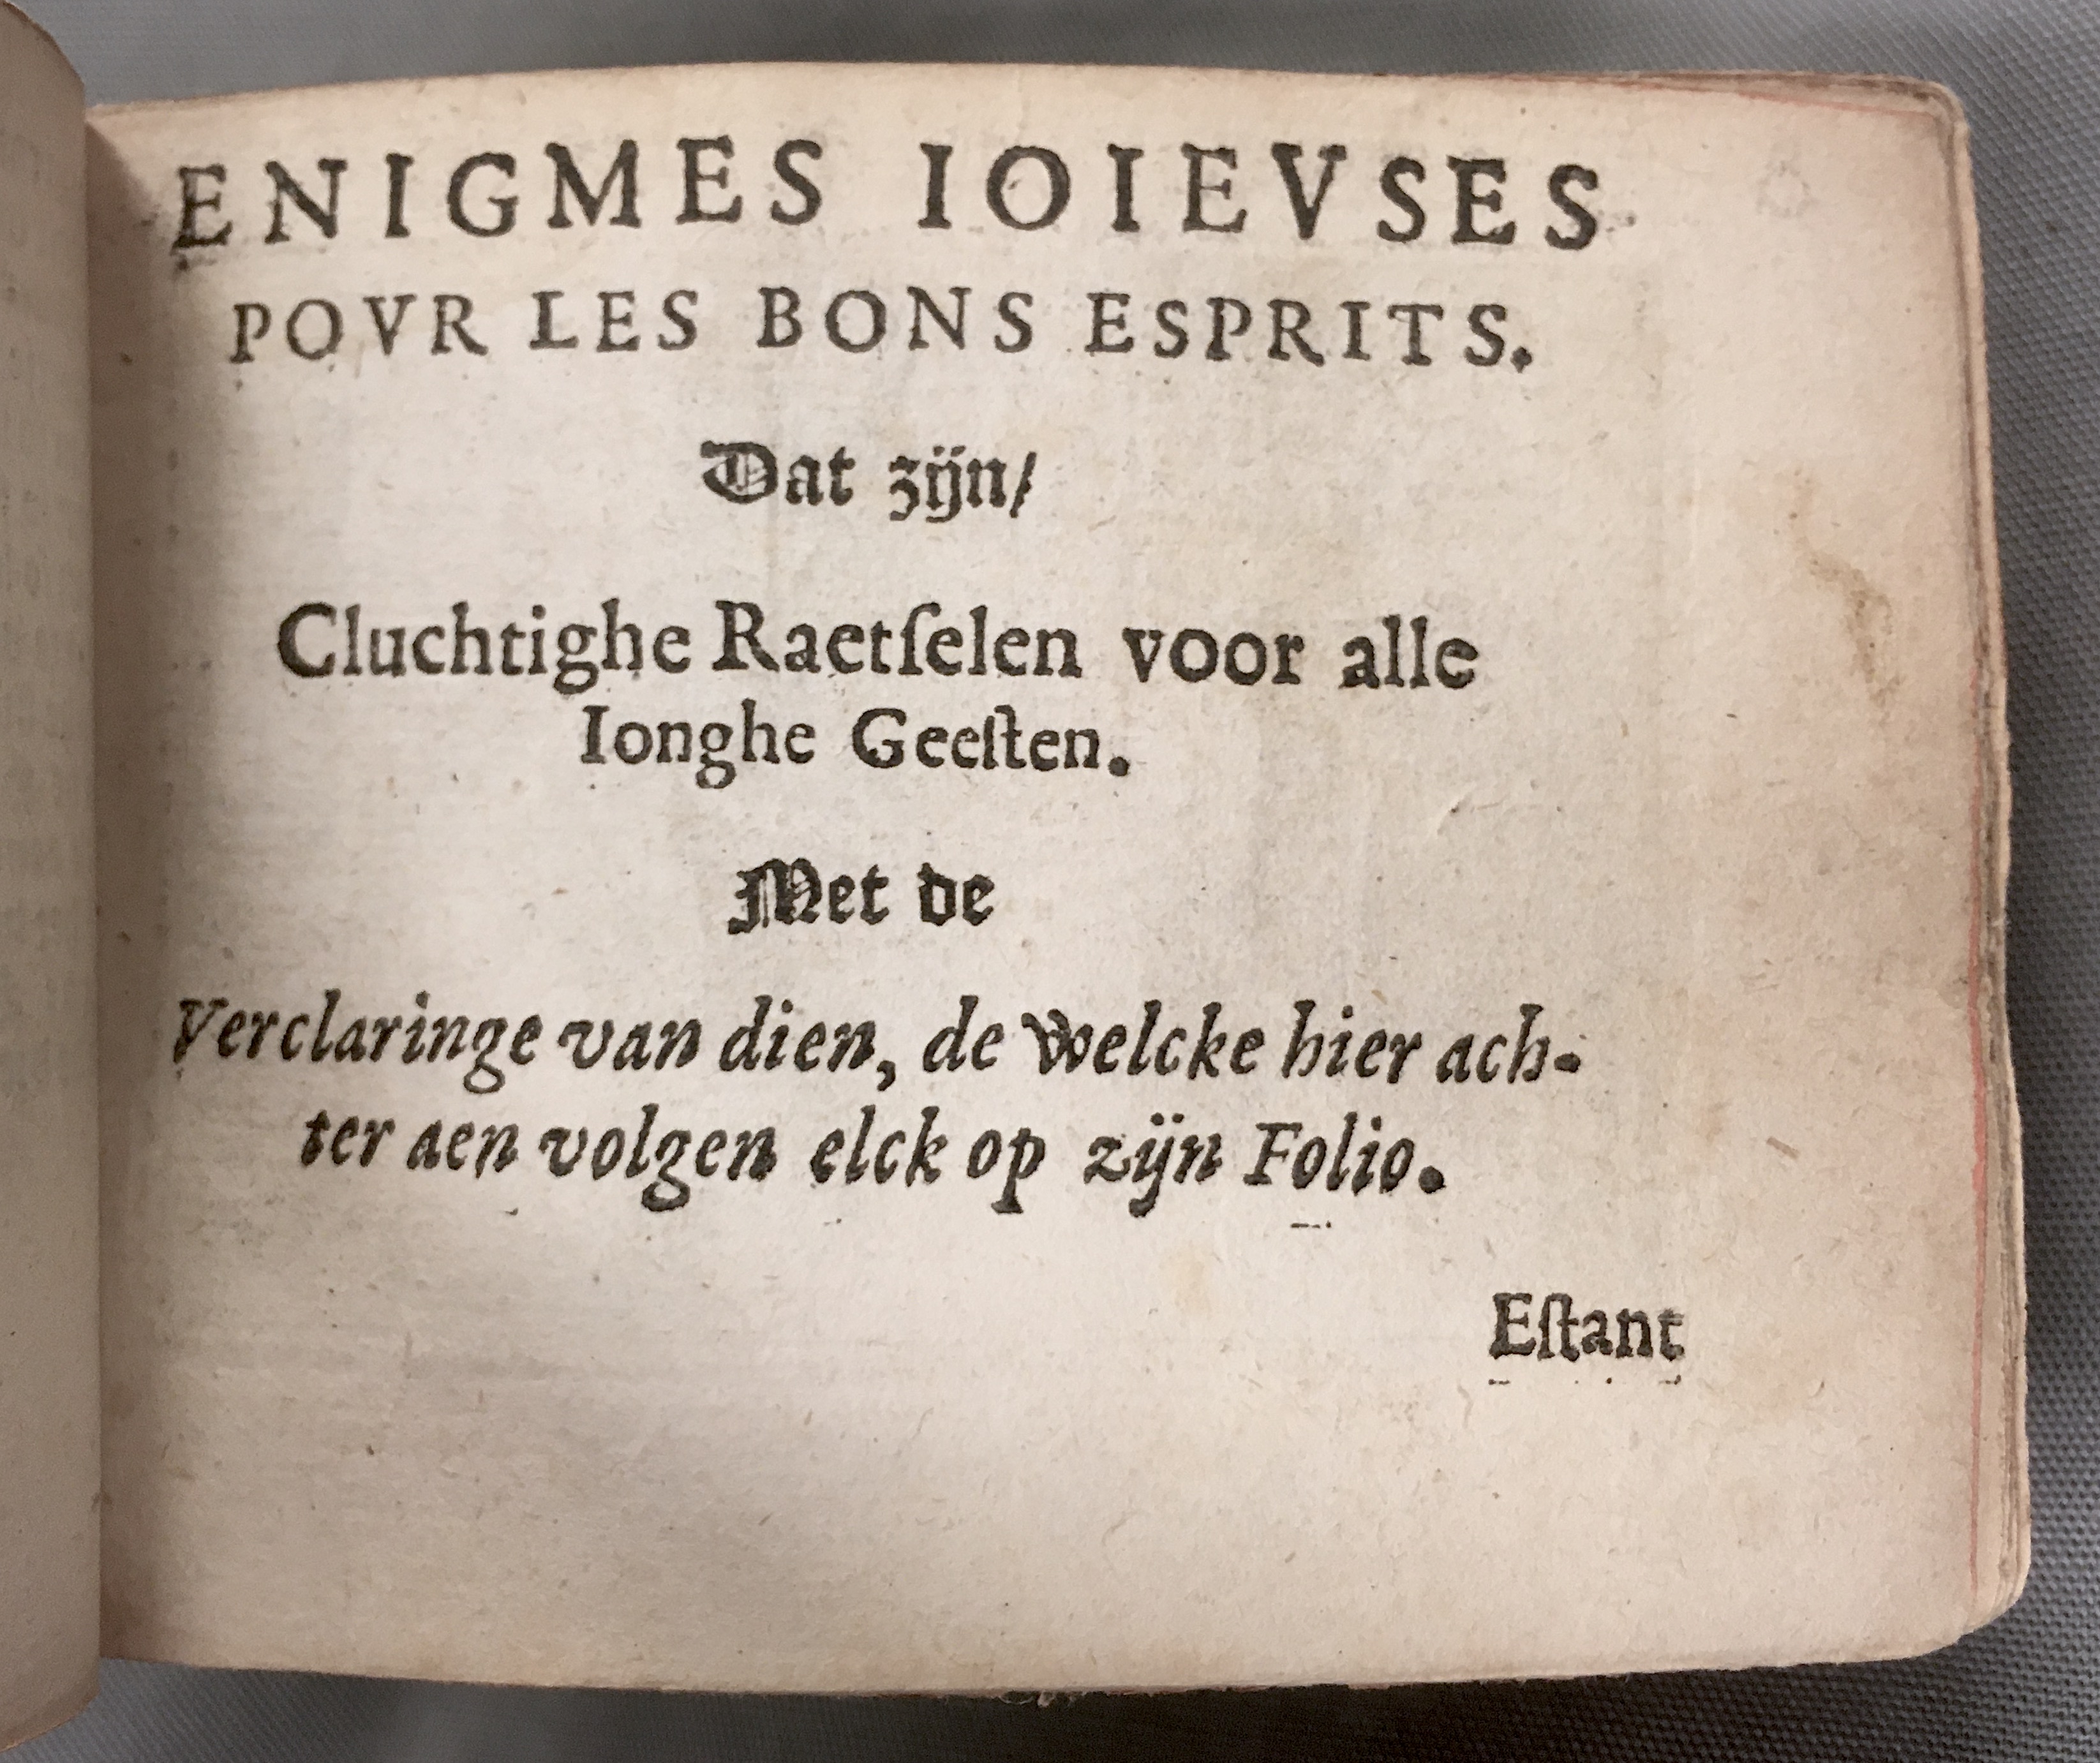 ENIGMES IOIEVSES
POVR LES BONS ESPRITS.
Dat zijn/
Cluchtighe Raetſelen voor alle
Ionghe Geeſten.
Met de
Verclaringe van dien, de welcke hier ach-
ter aen volgen elck op zijn Folio.
Eſtant